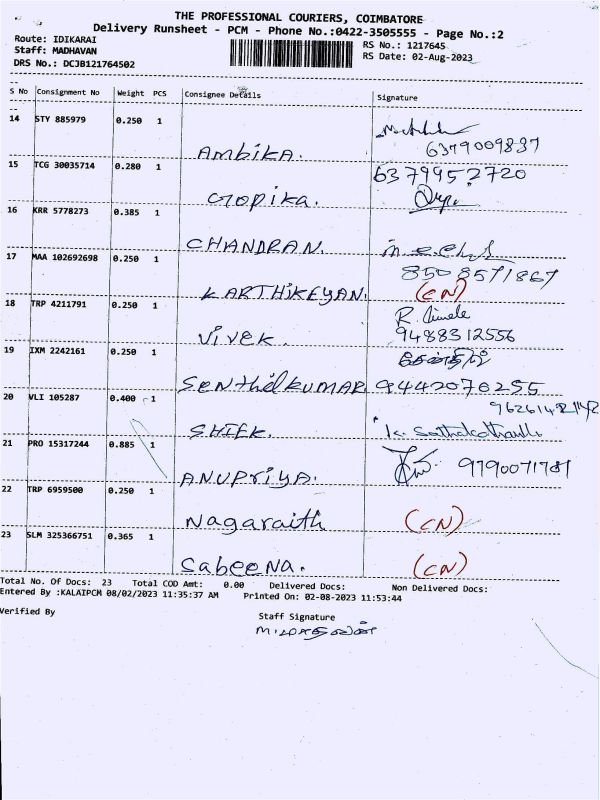 THE PROFESSIONAL COURIERS, COIMBATORE
Delivery Runsheet - PCM - Phone No.:0422-3505555 - Page No.:2
Route: IDIKARAI
RS No.: 1217645
Staff: MADHAVAN
RS Date: 02-Aug-2023
DRS No.: DCJB121764502
S No Consignment No Weight PCS Consignee Details Signature
14 STY 885979 0.250 1
Ambika. 6379009837
15 TCG 30035714 0.280 1 6379952720
Gopika.
16 KRR 5778273 0.385 1
CHANDRAN.
17 MAA 102692698 0.250 1 8508571867
KARTHIKEYAN. (CN)
18 TRP 4211791 0.250 1
Vivek. 9488312556
19 IXM 2242161 0.250 1 செந்தில்
Senthilkumar 9442070255
20 VLI 105287 0.400 1
SHIEK.
21 PRO 15317244 0.885 1
ANUPRIYA. 9790071781
22 TRP 6959500 0.250 1
Nagaraith (CN)
23 SLM 325366751 0.365 1
Sabeena. (CN)
Total No. Of Docs: 23 Total COD Amt: 0.00 Delivered Docs: Non Delivered Docs:
Entered By :KALAIPCM 08/02/2023 11:35:37 AM Printed On: 02-08-2023 11:53:44
Verified By
Staff Signature
ம.மாதவன்